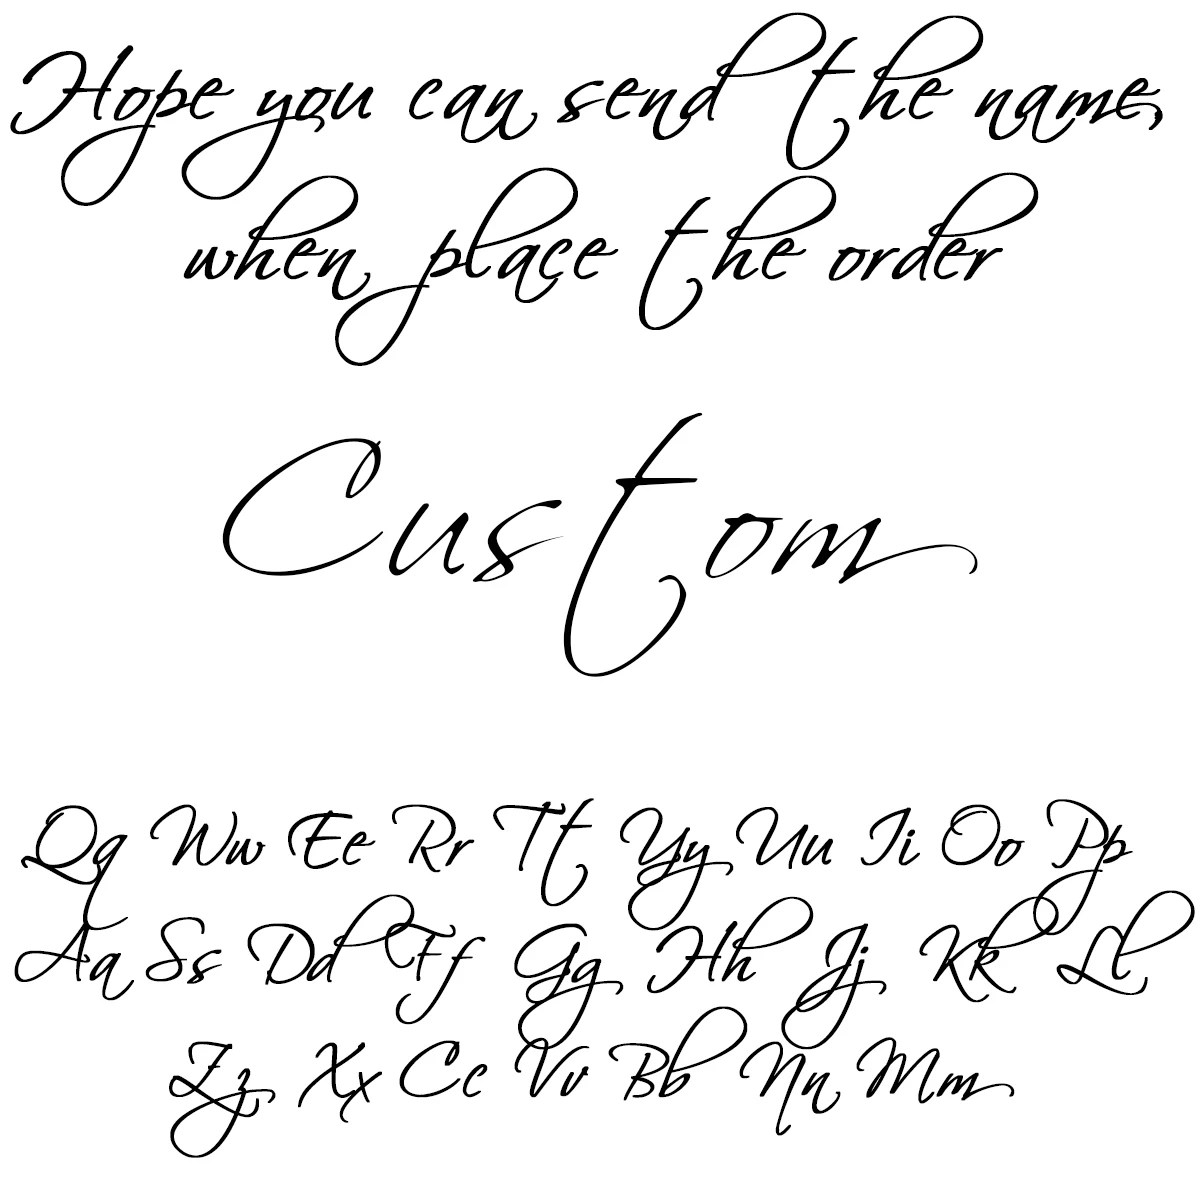 Hope you can send the name,
when place the order
Custom
Qq Ww Ee Rr Tt Yy Uu Ii Oo Pp
Aa Ss Dd Ff Gg Hh Jj Kk Ll
Zz Xx Cc Vv Bb Nn Mm